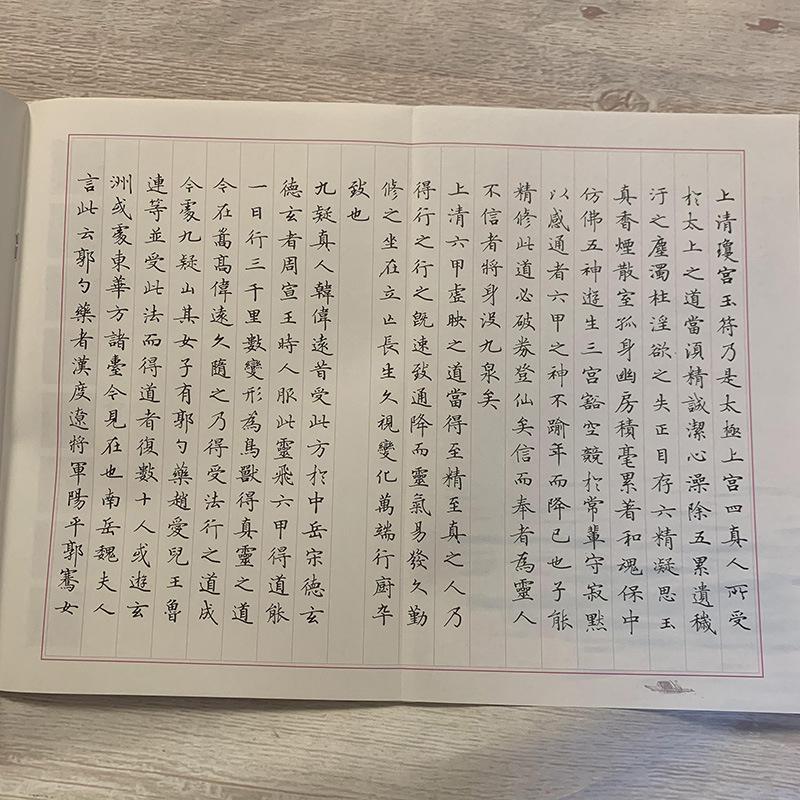 上清瓊宮玉符乃是太極上宮四真人所受
於太上之道當湏精誠潔心澡除五累遺穢
汙之塵濁杜淫欲之失正目存六精凝思玉
真香煙散室孤身幽房積毫累著和魂保中
仿佛五神遊生三宮豁空競於常輩守寂默
以感通者六甲之神不踰年而降已也子能
精修此道必破券登仙矣信而奉者為靈人
不信者將身没九泉矣
上清六甲虛映之道當得至精至真之人乃
得行之行之既速致通降而靈氣易發久勤
修之坐在立亡長生久視變化萬端行廚卒
致也
九疑真人韓偉遠昔受此方於中岳宋德玄
德玄者周宣王時人服此靈飛六甲得道能
一日行三千里數變形為鳥獸得真靈之道
今在嵩高偉遠久隨之乃得受法行之道成
今處九疑山其女子有郭勺藥趙愛兒王魯
連等並受此法而得道者復數十人或遊玄
洲或處東華方諸臺今見在也南岳魏夫人
言此云郭勺藥者漢度遼將軍陽平郭騫女